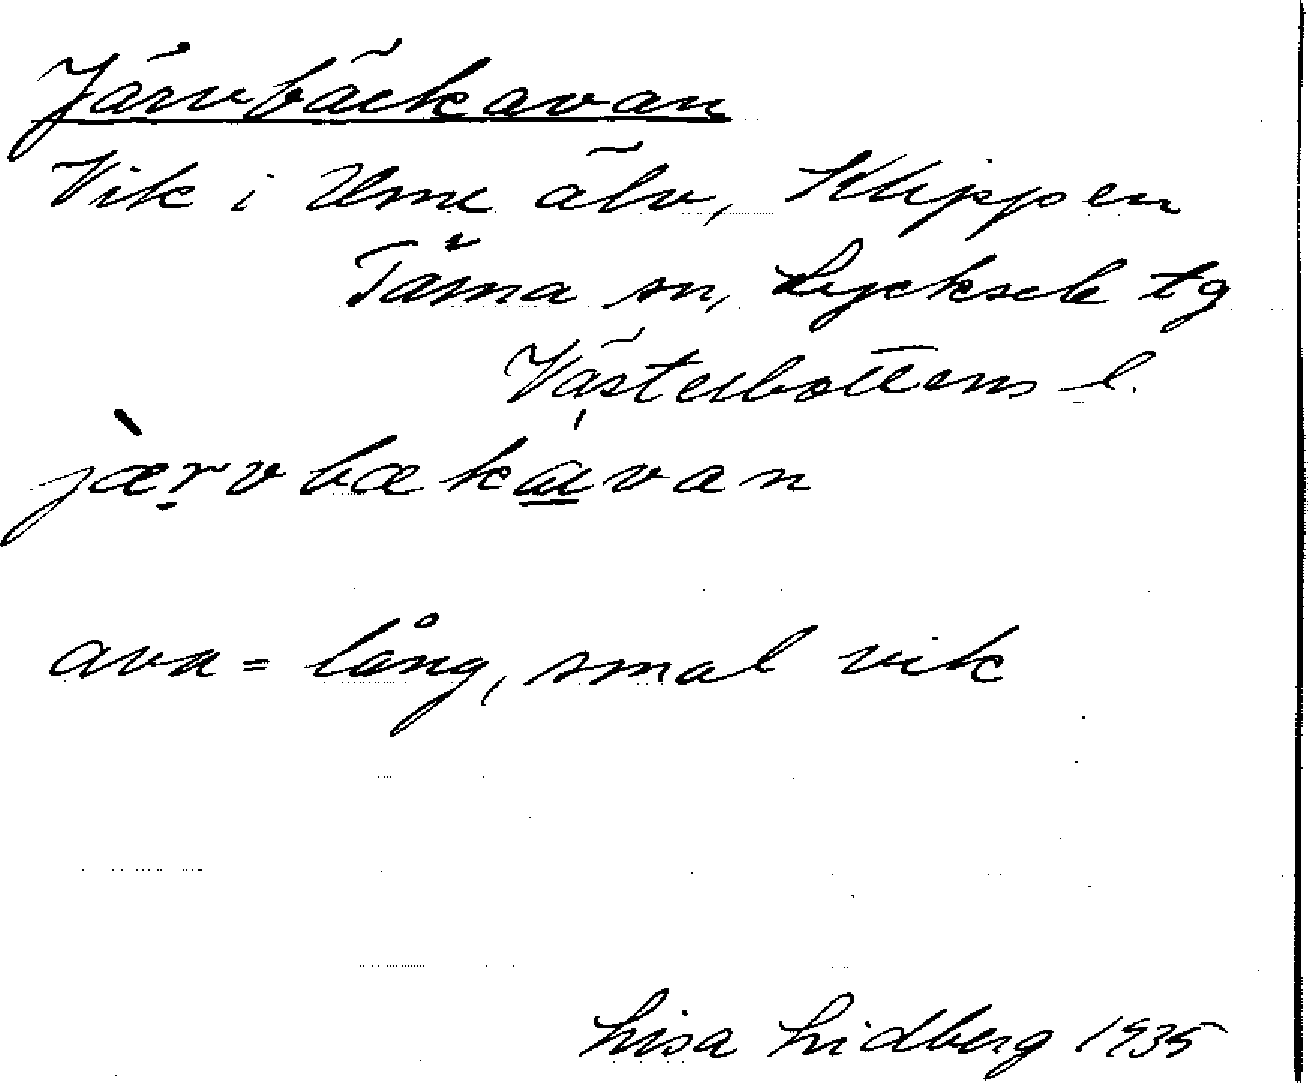 Järvbäckavan
Vik i Ume älv, Klippen
Tärna sn, Lycksele tg
Västerbottens l.
jæ̀rvbækavan
ava = lång, smal vik
Lisa Lidberg 1935